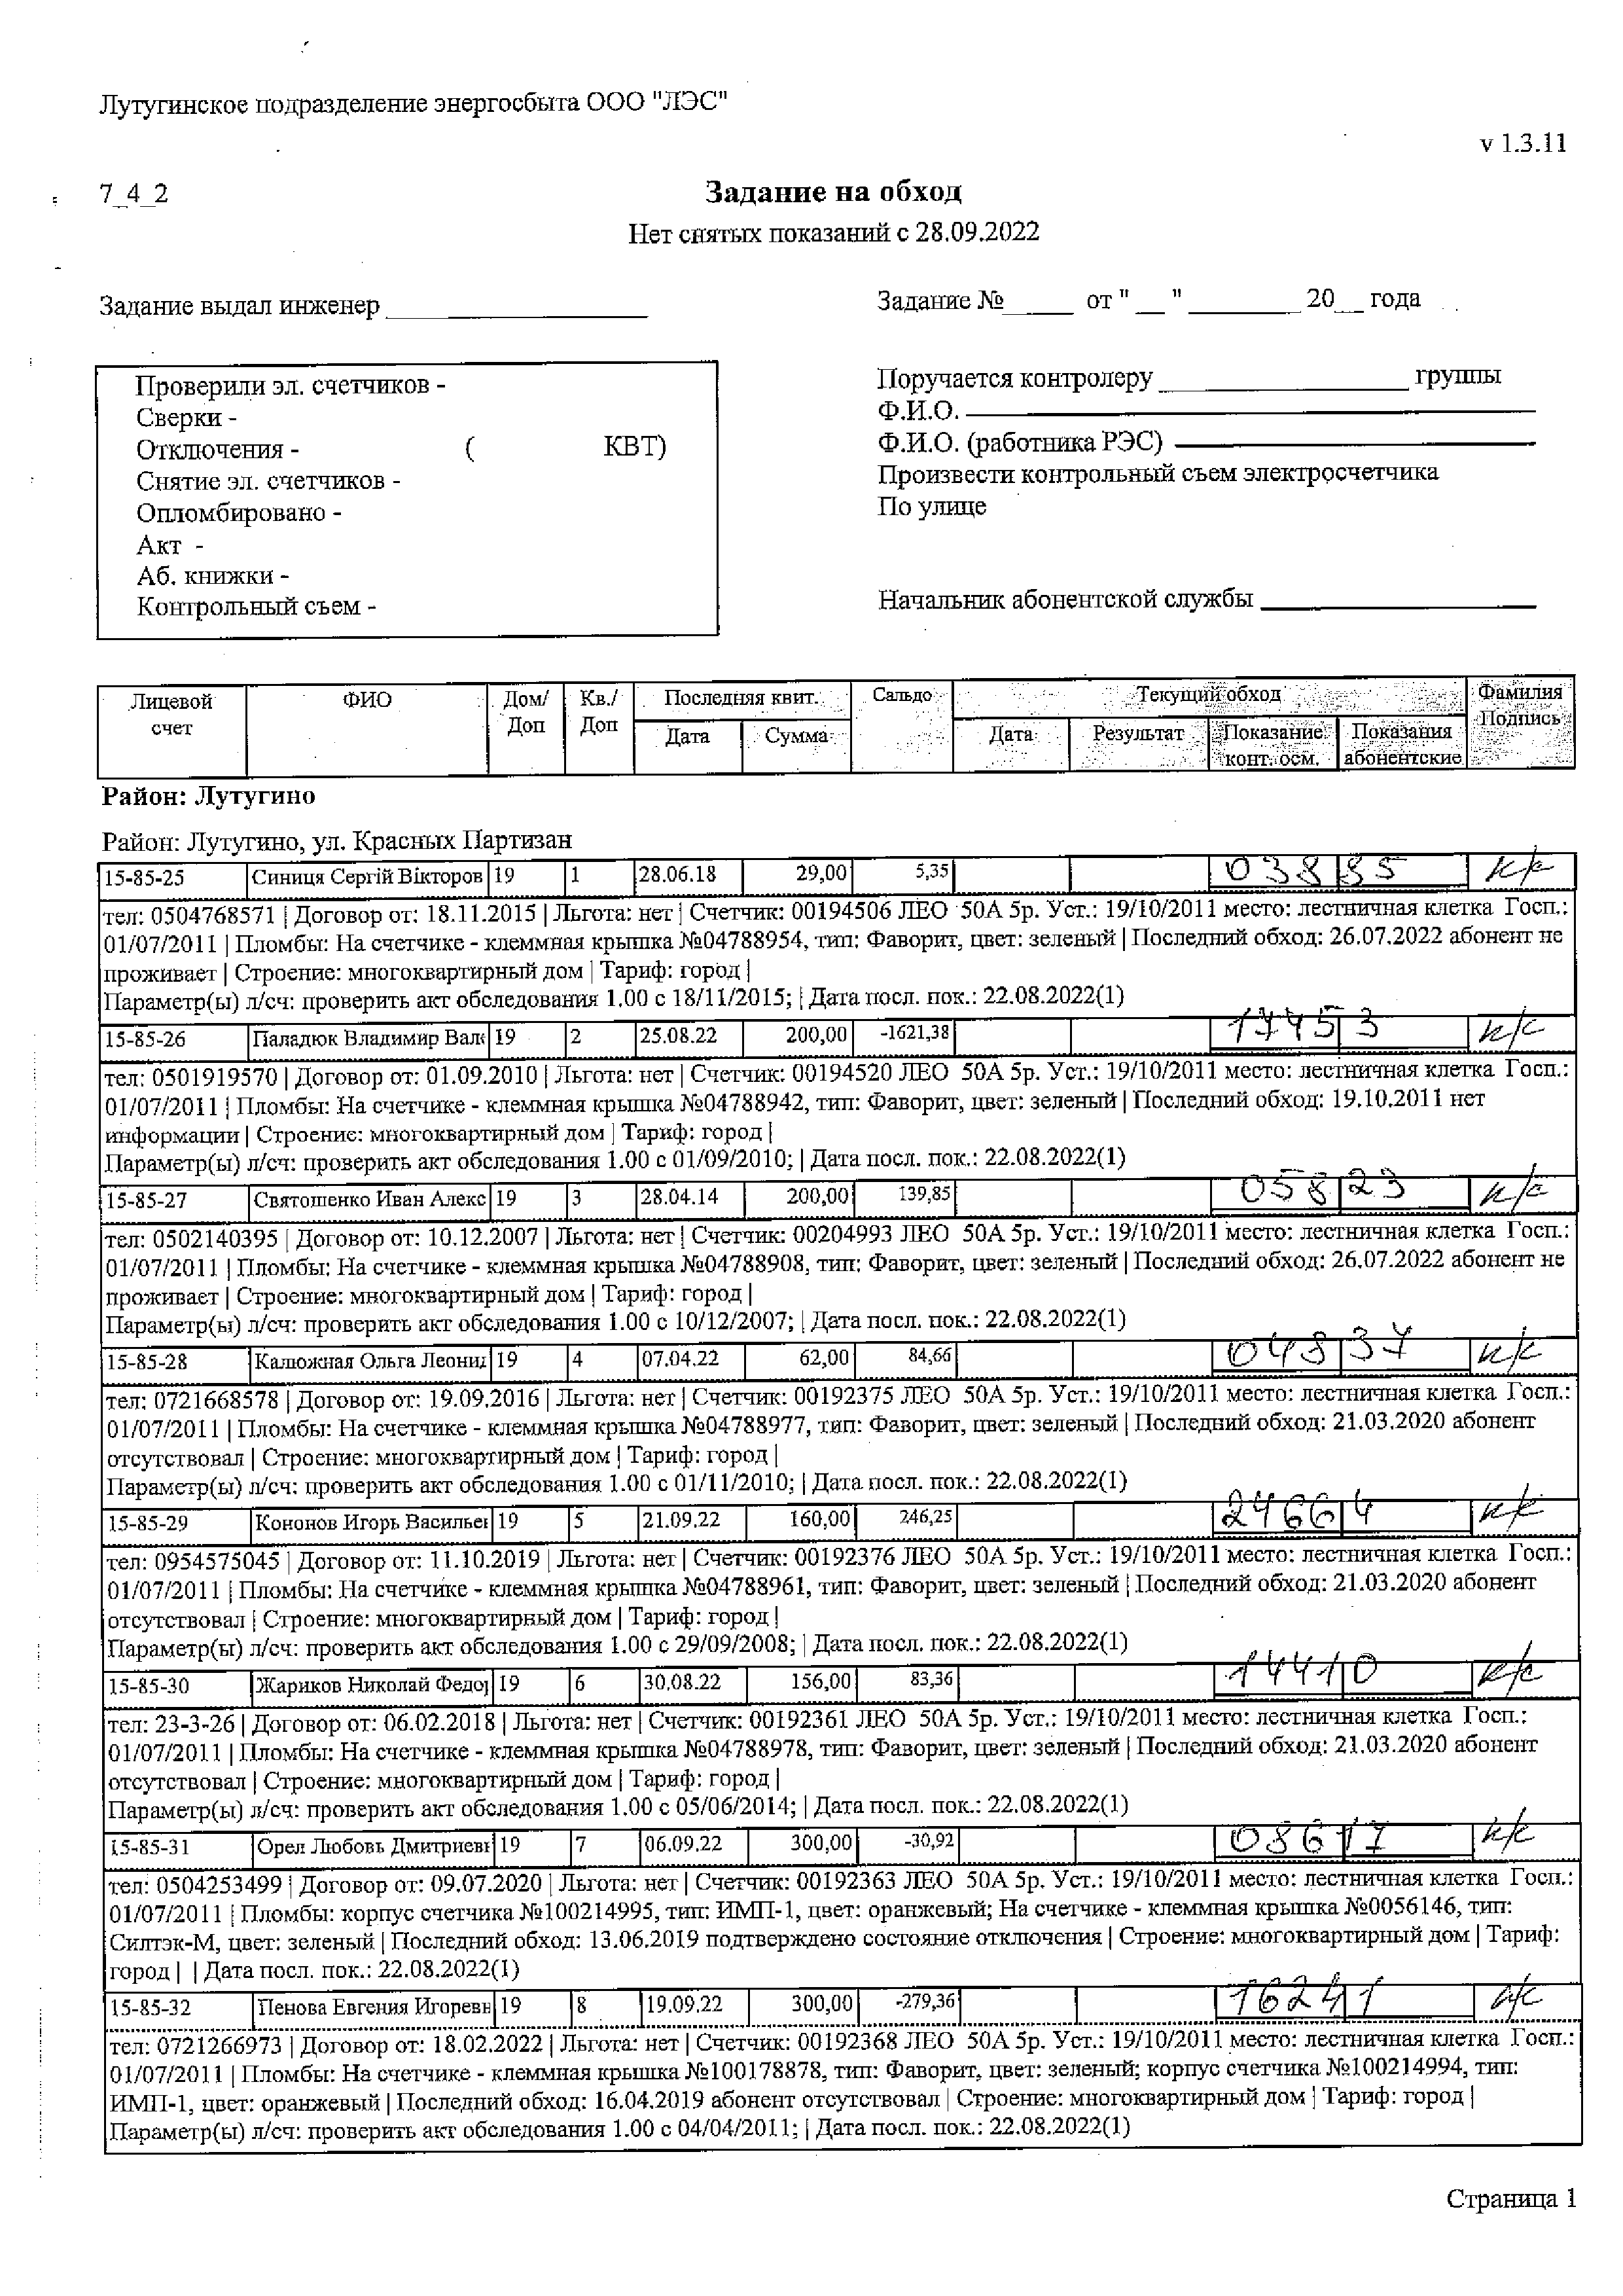 Лутугинское подразделение энергосбыта ООО "ЛЭС"
v 1.3.11
7_4_2
Задание на обход
Нет снятых показаний с 28.09.2022
Задание выдал инженер ____________________
Задание №_____ от "__" ________ 20__ года
Проверили эл. счетчиков -
Сверки -
Отключения - ( КВТ)
Снятие эл. счетчиков -
Опломбировано -
Акт -
Аб. книжки -
Контрольный съем -
Поручается контролеру ___________________ группы
Ф.И.О.
Ф.И.О. (работника РЭС)
Произвести контрольный съем электросчетчика
По улице
Начальник абонентской службы ____________________
Лицевой счет ФИО Дом/ Доп Кв./ Доп Последняя квит. Сальдо Текущий обход Фамилия Подпись
Дата Сумма Дата Результат Показание конт. осм. Показания абонентские
Район: Лутугино
Район: Лутугино, ул. Красных Партизан
15-85-25 Синиця Сергій Вікторов 19 1 28.06.18 29,00 5,35 03885 к/с
тел: 0504768571 | Договор от: 18.11.2015 | Льгота: нет | Счетчик: 00194506 ЛЕО 50А 5р. Уст.: 19/10/2011 место: лестничная клетка Госп.:
01/07/2011 | Пломбы: На счетчике - клеммная крышка №04788954, тип: Фаворит, цвет: зеленый | Последний обход: 26.07.2022 абонент не
проживает | Строение: многоквартирный дом | Тариф: город |
Параметр(ы) л/сч: проверить акт обследования 1.00 с 18/11/2015; | Дата посл. пок.: 22.08.2022(1)
15-85-26 Паладюк Владимир Вал 19 2 25.08.22 200,00 -1621,38 17453 к/с
тел: 0501919570 | Договор от: 01.09.2010 | Льгота: нет | Счетчик: 00194520 ЛЕО 50А 5р. Уст.: 19/10/2011 место: лестничная клетка Госп.:
01/07/2011 | Пломбы: На счетчике - клеммная крышка №04788942, тип: Фаворит, цвет: зеленый | Последний обход: 19.10.2011 нет
информации | Строение: многоквартирный дом | Тариф: город |
Параметр(ы) л/сч: проверить акт обследования 1.00 с 01/09/2010; | Дата посл. пок.: 22.08.2022(1)
15-85-27 Святошенко Иван Алекс 19 3 28.04.14 200,00 139,85 05823 к/с
тел: 0502140395 | Договор от: 10.12.2007 | Льгота: нет | Счетчик: 00204993 ЛЕО 50А 5р. Уст.: 19/10/2011 место: лестничная клетка Госп.:
01/07/2011 | Пломбы: На счетчике - клеммная крышка №04788908, тип: Фаворит, цвет: зеленый | Последний обход: 26.07.2022 абонент не
проживает | Строение: многоквартирный дом | Тариф: город |
Параметр(ы) л/сч: проверить акт обследования 1.00 с 10/12/2007; | Дата посл. пок.: 22.08.2022(1)
15-85-28 Калюжная Ольга Леонид 19 4 07.04.22 62,00 84,66 04837 к/с
тел: 0721668578 | Договор от: 19.09.2016 | Льгота: нет | Счетчик: 00192375 ЛЕО 50А 5р. Уст.: 19/10/2011 место: лестничная клетка Госп.:
01/07/2011 | Пломбы: На счетчике - клеммная крышка №04788977, тип: Фаворит, цвет: зеленый | Последний обход: 21.03.2020 абонент
отсутствовал | Строение: многоквартирный дом | Тариф: город |
Параметр(ы) л/сч: проверить акт обследования 1.00 с 01/11/2010; | Дата посл. пок.: 22.08.2022(1)
15-85-29 Кононов Игорь Василье 19 5 21.09.22 160,00 246,25 24664 к/с
тел: 0954575045 | Договор от: 11.10.2019 | Льгота: нет | Счетчик: 00192376 ЛЕО 50А 5р. Уст.: 19/10/2011 место: лестничная клетка Госп.:
01/07/2011 | Пломбы: На счетчике - клеммная крышка №04788961, тип: Фаворит, цвет: зеленый | Последний обход: 21.03.2020 абонент
отсутствовал | Строение: многоквартирный дом | Тариф: город |
Параметр(ы) л/сч: проверить акт обследования 1.00 с 29/09/2008; | Дата посл. пок.: 22.08.2022(1)
15-85-30 Жариков Николай Федор 19 6 30.08.22 156,00 83,36 14410 к/с
тел: 23-3-26 | Договор от: 06.02.2018 | Льгота: нет | Счетчик: 00192361 ЛЕО 50А 5р. Уст.: 19/10/2011 место: лестничная клетка Госп.:
01/07/2011 | Пломбы: На счетчике - клеммная крышка №04788978, тип: Фаворит, цвет: зеленый | Последний обход: 21.03.2020 абонент
отсутствовал | Строение: многоквартирный дом | Тариф: город |
Параметр(ы) л/сч: проверить акт обследования 1.00 с 05/06/2014; | Дата посл. пок.: 22.08.2022(1)
15-85-31 Орел Любовь Дмитриевн 19 7 06.09.22 300,00 -30,92 08617 к/с
тел: 0504253499 | Договор от: 09.07.2020 | Льгота: нет | Счетчик: 00192363 ЛЕО 50А 5р. Уст.: 19/10/2011 место: лестничная клетка Госп.:
01/07/2011 | Пломбы: корпус счетчика №100214995, тип: ИМП-1, цвет: оранжевый; На счетчике - клеммная крышка №0056146, тип:
Силтэк-М, цвет: зеленый | Последний обход: 13.06.2019 подтверждено состояние отключения | Строение: многоквартирный дом | Тариф:
город | | Дата посл. пок.: 22.08.2022(1)
15-85-32 Пенова Евгения Игоревн 19 8 19.09.22 300,00 -279,36 16241 к/с
тел: 0721266973 | Договор от: 18.02.2022 | Льгота: нет | Счетчик: 00192368 ЛЕО 50А 5р. Уст.: 19/10/2011 место: лестничная клетка Госп.:
01/07/2011 | Пломбы: На счетчике - клеммная крышка №100178878, тип: Фаворит, цвет: зеленый; корпус счетчика №100214994, тип:
ИМП-1, цвет: оранжевый | Последний обход: 16.04.2019 абонент отсутствовал | Строение: многоквартирный дом | Тариф: город |
Параметр(ы) л/сч: проверить акт обследования 1.00 с 04/04/2011; | Дата посл. пок.: 22.08.2022(1)
Страница 1